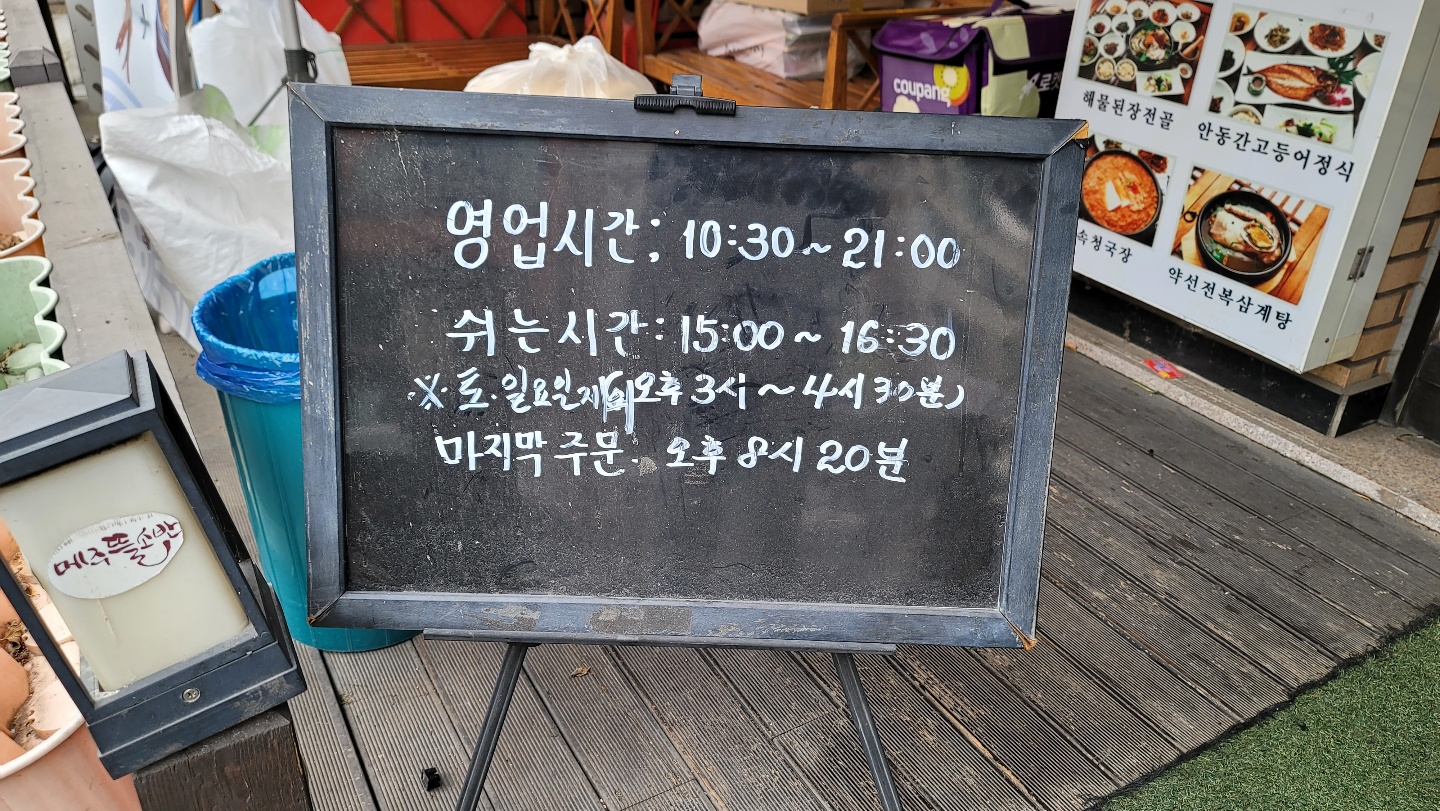 영업시간; 10:30~21:00
쉬는시간: 15:00~16:30
※.토.일요일제외(오후 3시~4시30분)
마지막 주문. 오후 8시 20분
coupang
로켓
해물된장전골
안동간고등어정식
속청국장
약선전복삼계탕
메주뜰소반